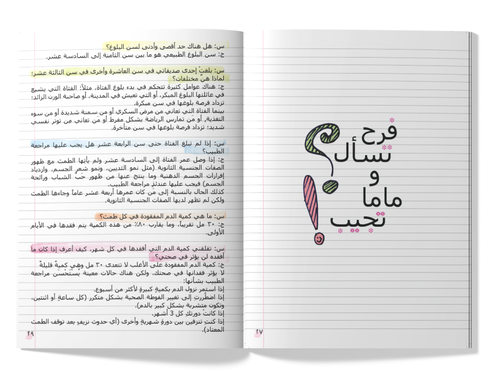 فرح
تسأل
و
ماما
تجيب
٢٧
س: هل هناك حد أقصى وأدنى لسن البلوغ؟
ج: سن البلوغ الطبيعي هو ما بين الثامنة إلى السادسة عشر.
س: بلغت إحدى صديقاتي في سن العاشرة وأخرى في سن الثالثة عشر؛
لماذا هنّ مختلفات؟
ج: هناك عوامل كثيرة تتحكم في بدء بلوغ الفتاة، مثلاً: الفتاة التي يشيع
في عائلتها البلوغ المبكر، أو التي تعيش في المدينة، أو صاحبة الوزن الزائد؛
تزداد فرصة بلوغها في سن مبكرة.
بينما الفتاة التي تعاني من مرض السكري أو من سمنة شديدة أو من سوء
التغذية، أو من تمارس الرياضة بشكل مفرط أو من تعاني من توتر نفسي
شديد؛ تزداد فرصة بلوغها في سن متأخرة.
س: إذا لم تبلغ الفتاة حتى سن الرابعة عشر هل يجب عليها مراجعة
الطبيب؟
ج: إذا وصل عمر الفتاة إلى السادسة عشر ولم يأتها الطمث مع ظهور
الصفات الجنسية الثانوية (مثل نمو الثديين، ونمو شعر الجسم، وازدياد
إفرازات الجسم الدهنية وما ينتج عنها من ظهور حب الشباب ورائحة
الجسم) فيجب عليها عندئذٍ مراجعة الطبيب.
كذلك الحال بالنسبة إلى من كان عمرها أربعة عشر عاماً وجاءها الطمث
ولكن لم تظهر لديها الصفات الجنسية الثانوية.
س: ما هي كمية الدم المفقودة في كل طمث؟
ج: ٣٠ مل تقريباً، وما يقارب ٨٠٪ من هذه الكمية يتم فقدها في الأيام
الأولى.
س: تقلقني كمية الدم التي أفقدها في كل شهر، كيف أعرف إذا كان ما
أفقده لن يؤثر في صحتي؟
ج: كمية الدم المفقودة على الأغلب لا تتعدى ٣٠ مل وهي كميةٌ قليلةٌ
لا يؤثر فقدانها في صحتك. ولكن هناك حالات معينة يُستحسن مراجعة
الطبيب بشأنها:
إذا استمر نزول الدم بكميةٍ كبيرةٍ لأكثر من أسبوع.
إذا اضطررتِ إلى تغيير الفوطة الصحية بشكل متكرر (كل ساعةٍ أو اثنتين،
وتكون متشربة بشكل كبير بالدم).
إذا كانت دورتكِ كل 3 أشهر.
إذا كنتِ تنزفين بين دورةٍ شهريةٍ وأخرى (أي حدوث نزيفٍ بعد توقف الطمث
المعتاد).
٢٨